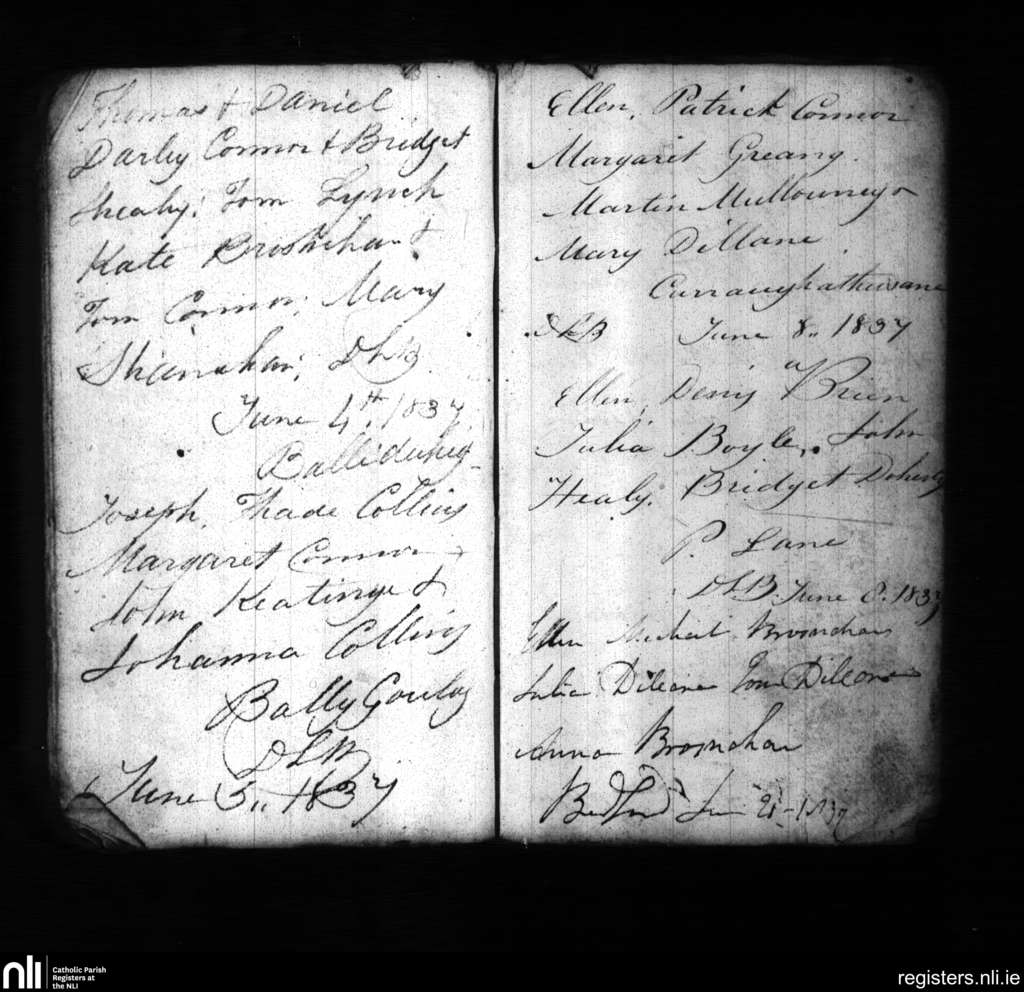 Thomas & Daniel
Darby Connor & Bridget
Shealy; Tom Lynch
Kate Brosnehan &
Tom Connor; Mary
Shanahan; DLB
June 4th, 1837
Balliduhig
Joseph, Thade Collins
Margaret Connor
John Keatinge &
Johanna Collins
Bally
DLB
June 5,, 1837
Ellen, Patrick Connor
Margaret Greany.
Martin Mullowney
Mary Dillane.
DLB June 8,, 1837
Ellen, Denis Brien
Julia Boyle, John
Healy. Bridget Doherty
P. Lane
DLB. June 8. 1837
Ellen Michael Brosnehan
Julia Dileane Tom Dileane
Anna Brosnahan
21 - 1837
nli
Catholic Parish
Registers at
the NLI
registers.nli.ie